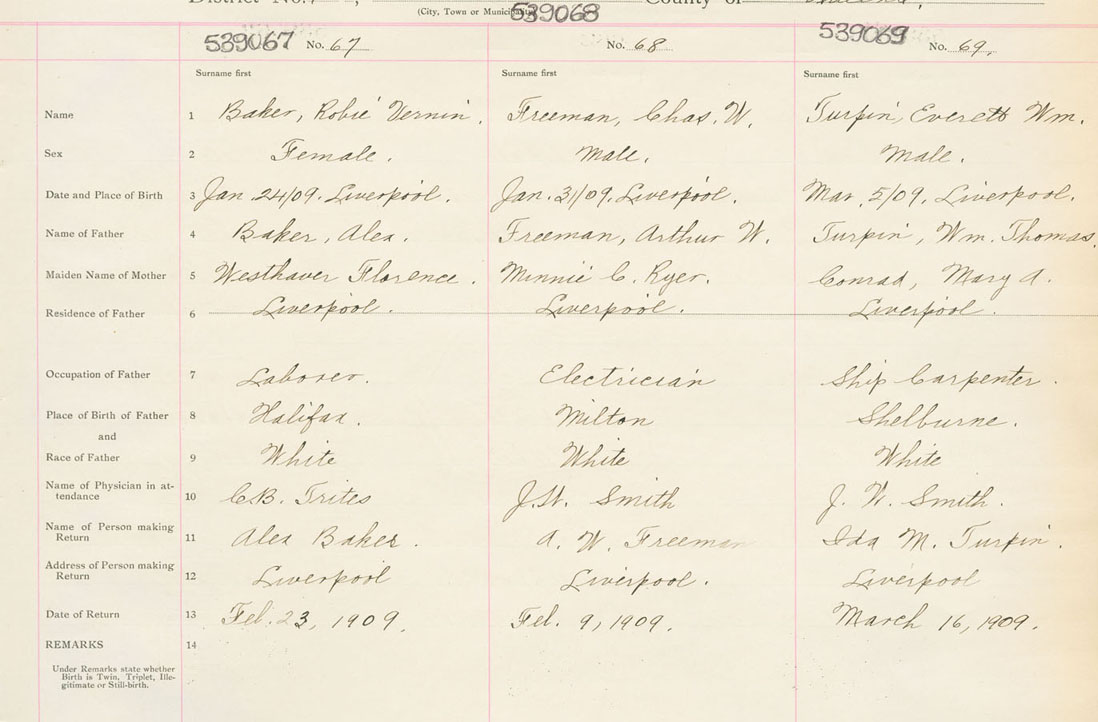 District No.
(City, Town or Municipality)
County of
539067 No. 67
539068 No. 68
539069 No. 69.
Surname first Surname first Surname first
Name 1 Baker, Robie Vernin. Freeman, Chas. W. Turpin, Everett Wm.
Sex 2 Female. Male. Male.
Date and Place of Birth 3 Jan. 24/09. Liverpool. Jan. 31/09. Liverpool. Mar. 5/09, Liverpool.
Name of Father 4 Baker, Alex. Freeman, Arthur W. Turpin, Wm. Thomas.
Maiden Name of Mother 5 Westhaver Florence. Minnie C. Ryer. Conrad, Mary A.
Residence of Father 6 Liverpool. Liverpool. Liverpool.
Occupation of Father 7 Laborer. Electrician Ship Carpenter.
Place of Birth of Father 8 Halifax. Milton Shelburne.
and
Race of Father 9 White White White
Name of Physician in at-
tendance 10 C.B. Trites J.W. Smith J. W. Smith.
Name of Person making
Return 11 Alex Baker. A. W. Freeman Ida M. Turpin.
Address of Person making
Return 12 Liverpool Liverpool. Liverpool
Date of Return 13 Feb. 23, 1909. Feb. 9, 1909. March 16, 1909.
REMARKS 14
Under Remarks state whether
Birth is Twin, Triplet, Ille-
gitimate or Still-birth.